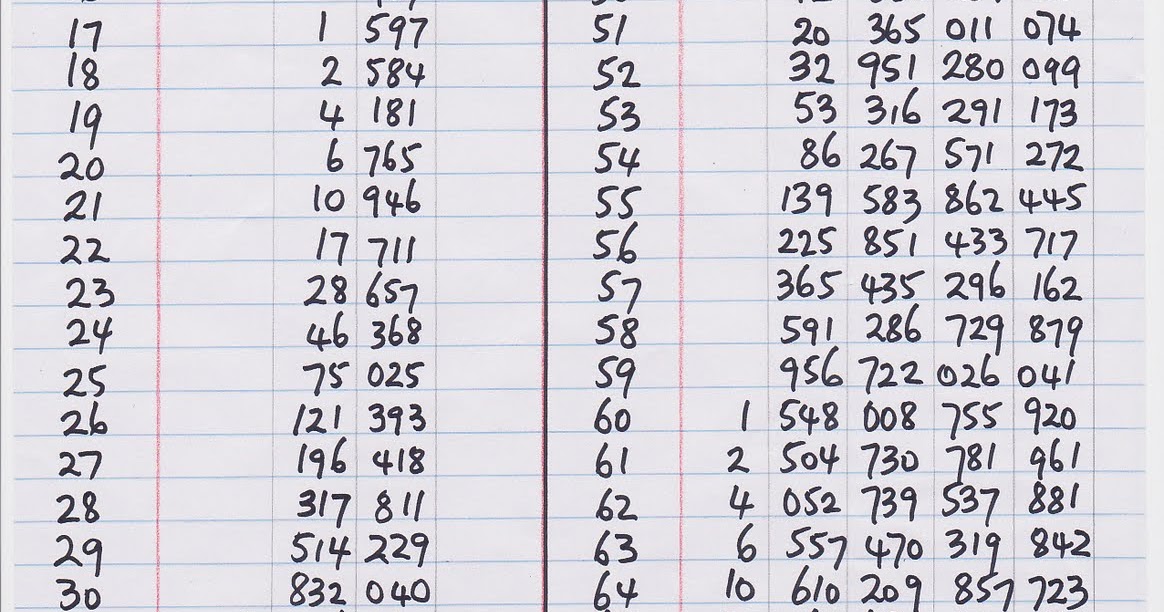 17 1 597 51 20 365 011 074
18 2 584 52 32 951 280 099
19 4 181 53 53 316 291 173
20 6 765 54 86 267 571 272
21 10 946 55 139 583 862 445
22 17 711 56 225 851 433 717
23 28 657 57 365 435 296 162
24 46 368 58 591 286 729 879
25 75 025 59 956 722 026 041
26 121 393 60 1 548 008 755 920
27 196 418 61 2 504 730 781 961
28 317 811 62 4 052 739 537 881
29 514 229 63 6 557 470 319 842
30 832 040 64 10 610 209 857 723